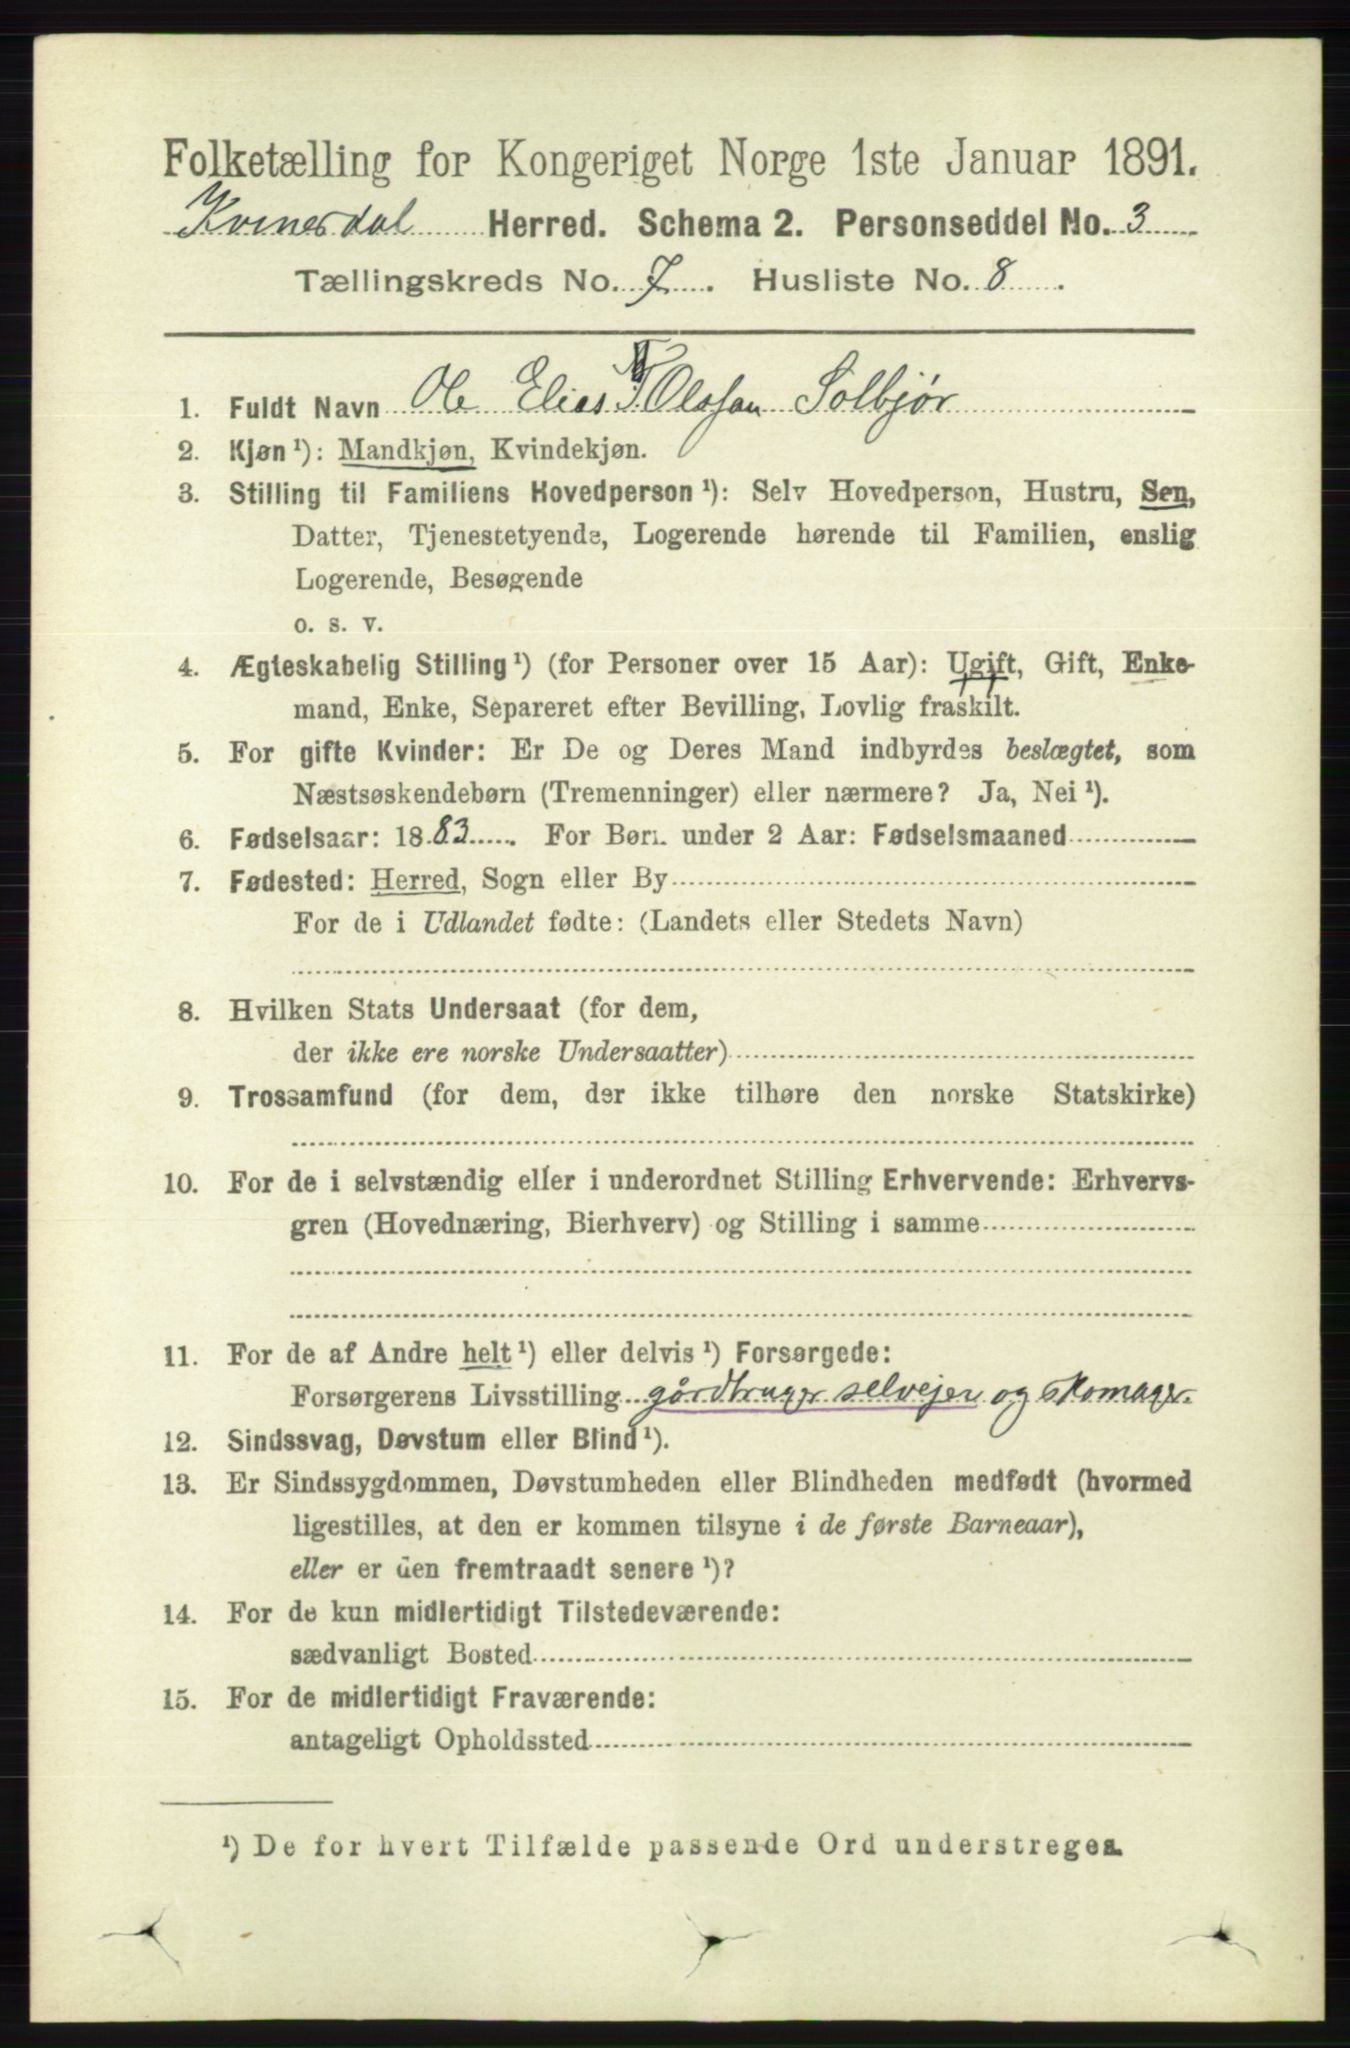 Folketælling for Kongeriget Norge 1ste Januar 1891.
Kvinesdal Herred. Schema 2. Personseddel No. 3
Tællingskreds No. 7. Husliste No. 8.
1. Fuldt Navn Ole Elias Olsson Solbjør
2. Kjøn ¹): Mandkjøn, Kvindekjøn.
3. Stilling til Familiens Hovedperson ¹): Selv Hovedperson, Hustru, Søn,
Datter, Tjenestetyende, Logerende hørende til Familien, enslig
Logerende, Besøgende
o. s. v.
4. Ægteskabelig Stilling ¹) (for Personer over 15 Aar): Ugift, Gift, Enke-
mand, Enke, Separeret efter Bevilling, Lovlig fraskilt.
5. For gifte Kvinder: Er De og Deres Mand indbyrdes beslægtet, som
Næstsøskendebørn (Tremenninger) eller nærmere? Ja, Nei ¹).
6. Fødselsaar: 1883. For Børn under 2 Aar: Fødselsmaaned
7. Fødested: Herred, Sogn eller By
For de i Udlandet fødte: (Landets eller Stedets Navn)
8. Hvilken Stats Undersaat (for dem,
der ikke ere norske Undersaatter)
9. Trossamfund (for dem, der ikke tilhøre den norske Statskirke)
10. For de i selvstændig eller i underordnet Stilling Erhvervende: Erhvervs-
gren (Hovednæring, Bierhverv) og Stilling i samme
11. For de af Andre helt ¹) eller delvis ¹) Forsørgede:
Forsørgerens Livsstilling gårdbruger selvejer og skomager.
12. Sindssvag, Døvstum eller Blind ¹).
13. Er Sindssygdommen, Døvstumheden eller Blindheden medfødt (hvormed
ligestilles, at den er kommen tilsyne i de første Barneaar),
eller er den fremtraadt senere ¹)?
14. For de kun midlertidigt Tilstedeværende:
sædvanligt Bosted
15. For de midlertidigt Fraværende:
antageligt Opholdssted
¹) De for hvert Tilfælde passende Ord understreges.